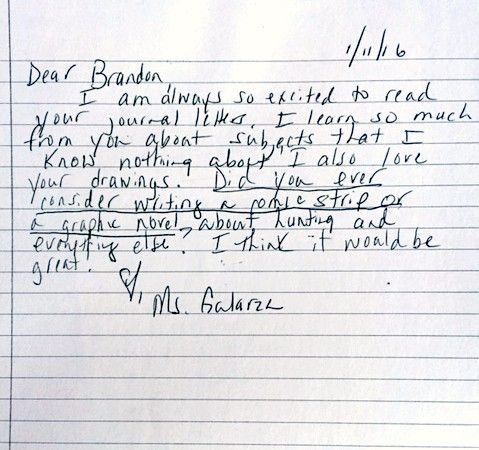 1/11/16
Dear Brandon,
I am always so excited to read
your journal letters. I learn so much
from you about subjects that I
know nothing about, I also love
your drawings. Did you ever
consider writing a comic strip or
a graphic novel, about hunting and
everything else? I think it would be
great.
Ms. Galarza